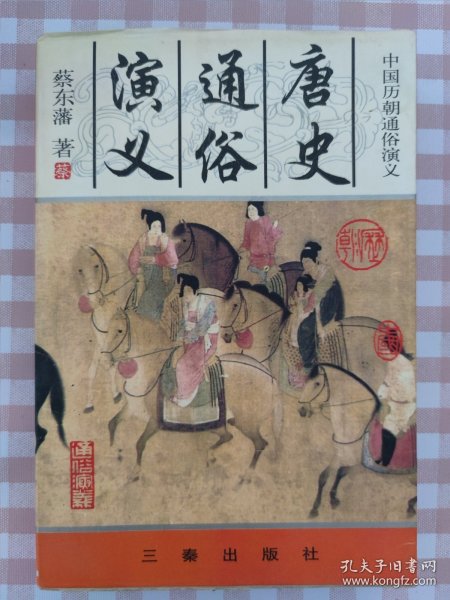 中国历朝通俗演义
唐史
通俗
演义
蔡东藩 著
蔡
通俗演義
三秦出版社
孔夫子旧书网
www.kongfz.com